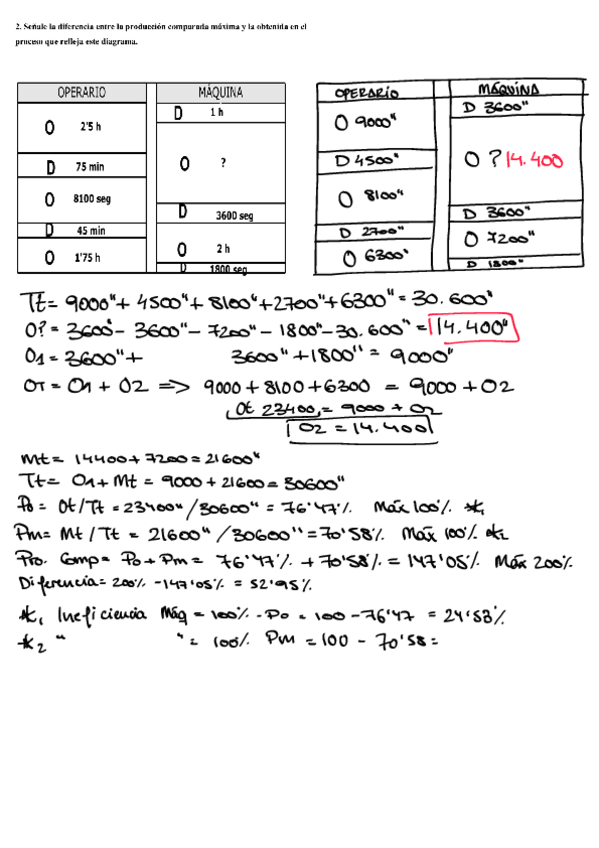 2. Señale la diferencia entre la producción comparada máxima y la obtenida en el
proceso que refleja este diagrama.
OPERARIO MÁQUINA
O 2'5 h
D 75 min
O 8100 seg
D 45 min
O 1'75 h
D 1 h
O ?
D 3600 seg
O 2 h
D 1800 seg
OPERARIO MÁQUINA
O 9000"
D 4500"
O 8100"
D 2700"
O 6300"
D 3600"
O ? 14.400
D 3600"
O 7200"
D 1800"
Tt = 9000" + 4500" + 8100" + 2700" + 6300" = 30.600"
O? = 3600" - 3600" - 7200" - 1800" - 30.600" = 14.400"
O1 = 3600" + 3600" + 1800" = 9000"
OT = O1 + O2 => 9000 + 8100 + 6300 = 9000 + O2
Ot 23400, = 9000 + O2
O2 = 14.400
Mt = 14400 + 7200 = 21600"
Tt = O1 + Mt = 9000 + 21600 = 30600"
Po = Ot / Tt = 23400" / 30600" = 76'47% Máx 100% *1
Pm = Mt / Tt = 21600" / 30600" = 70'58% Máx 100% *2
Pro. Comp = Po + Pm = 76'47% + 70'58% = 147'05% Máx 200%
Diferencia = 200% - 147'05% = 52'95%
*1 Ineficiencia Máq = 100% - Po = 100 - 76'47 = 24'53%
*2 " " = 100% Pm = 100 - 70'58 =